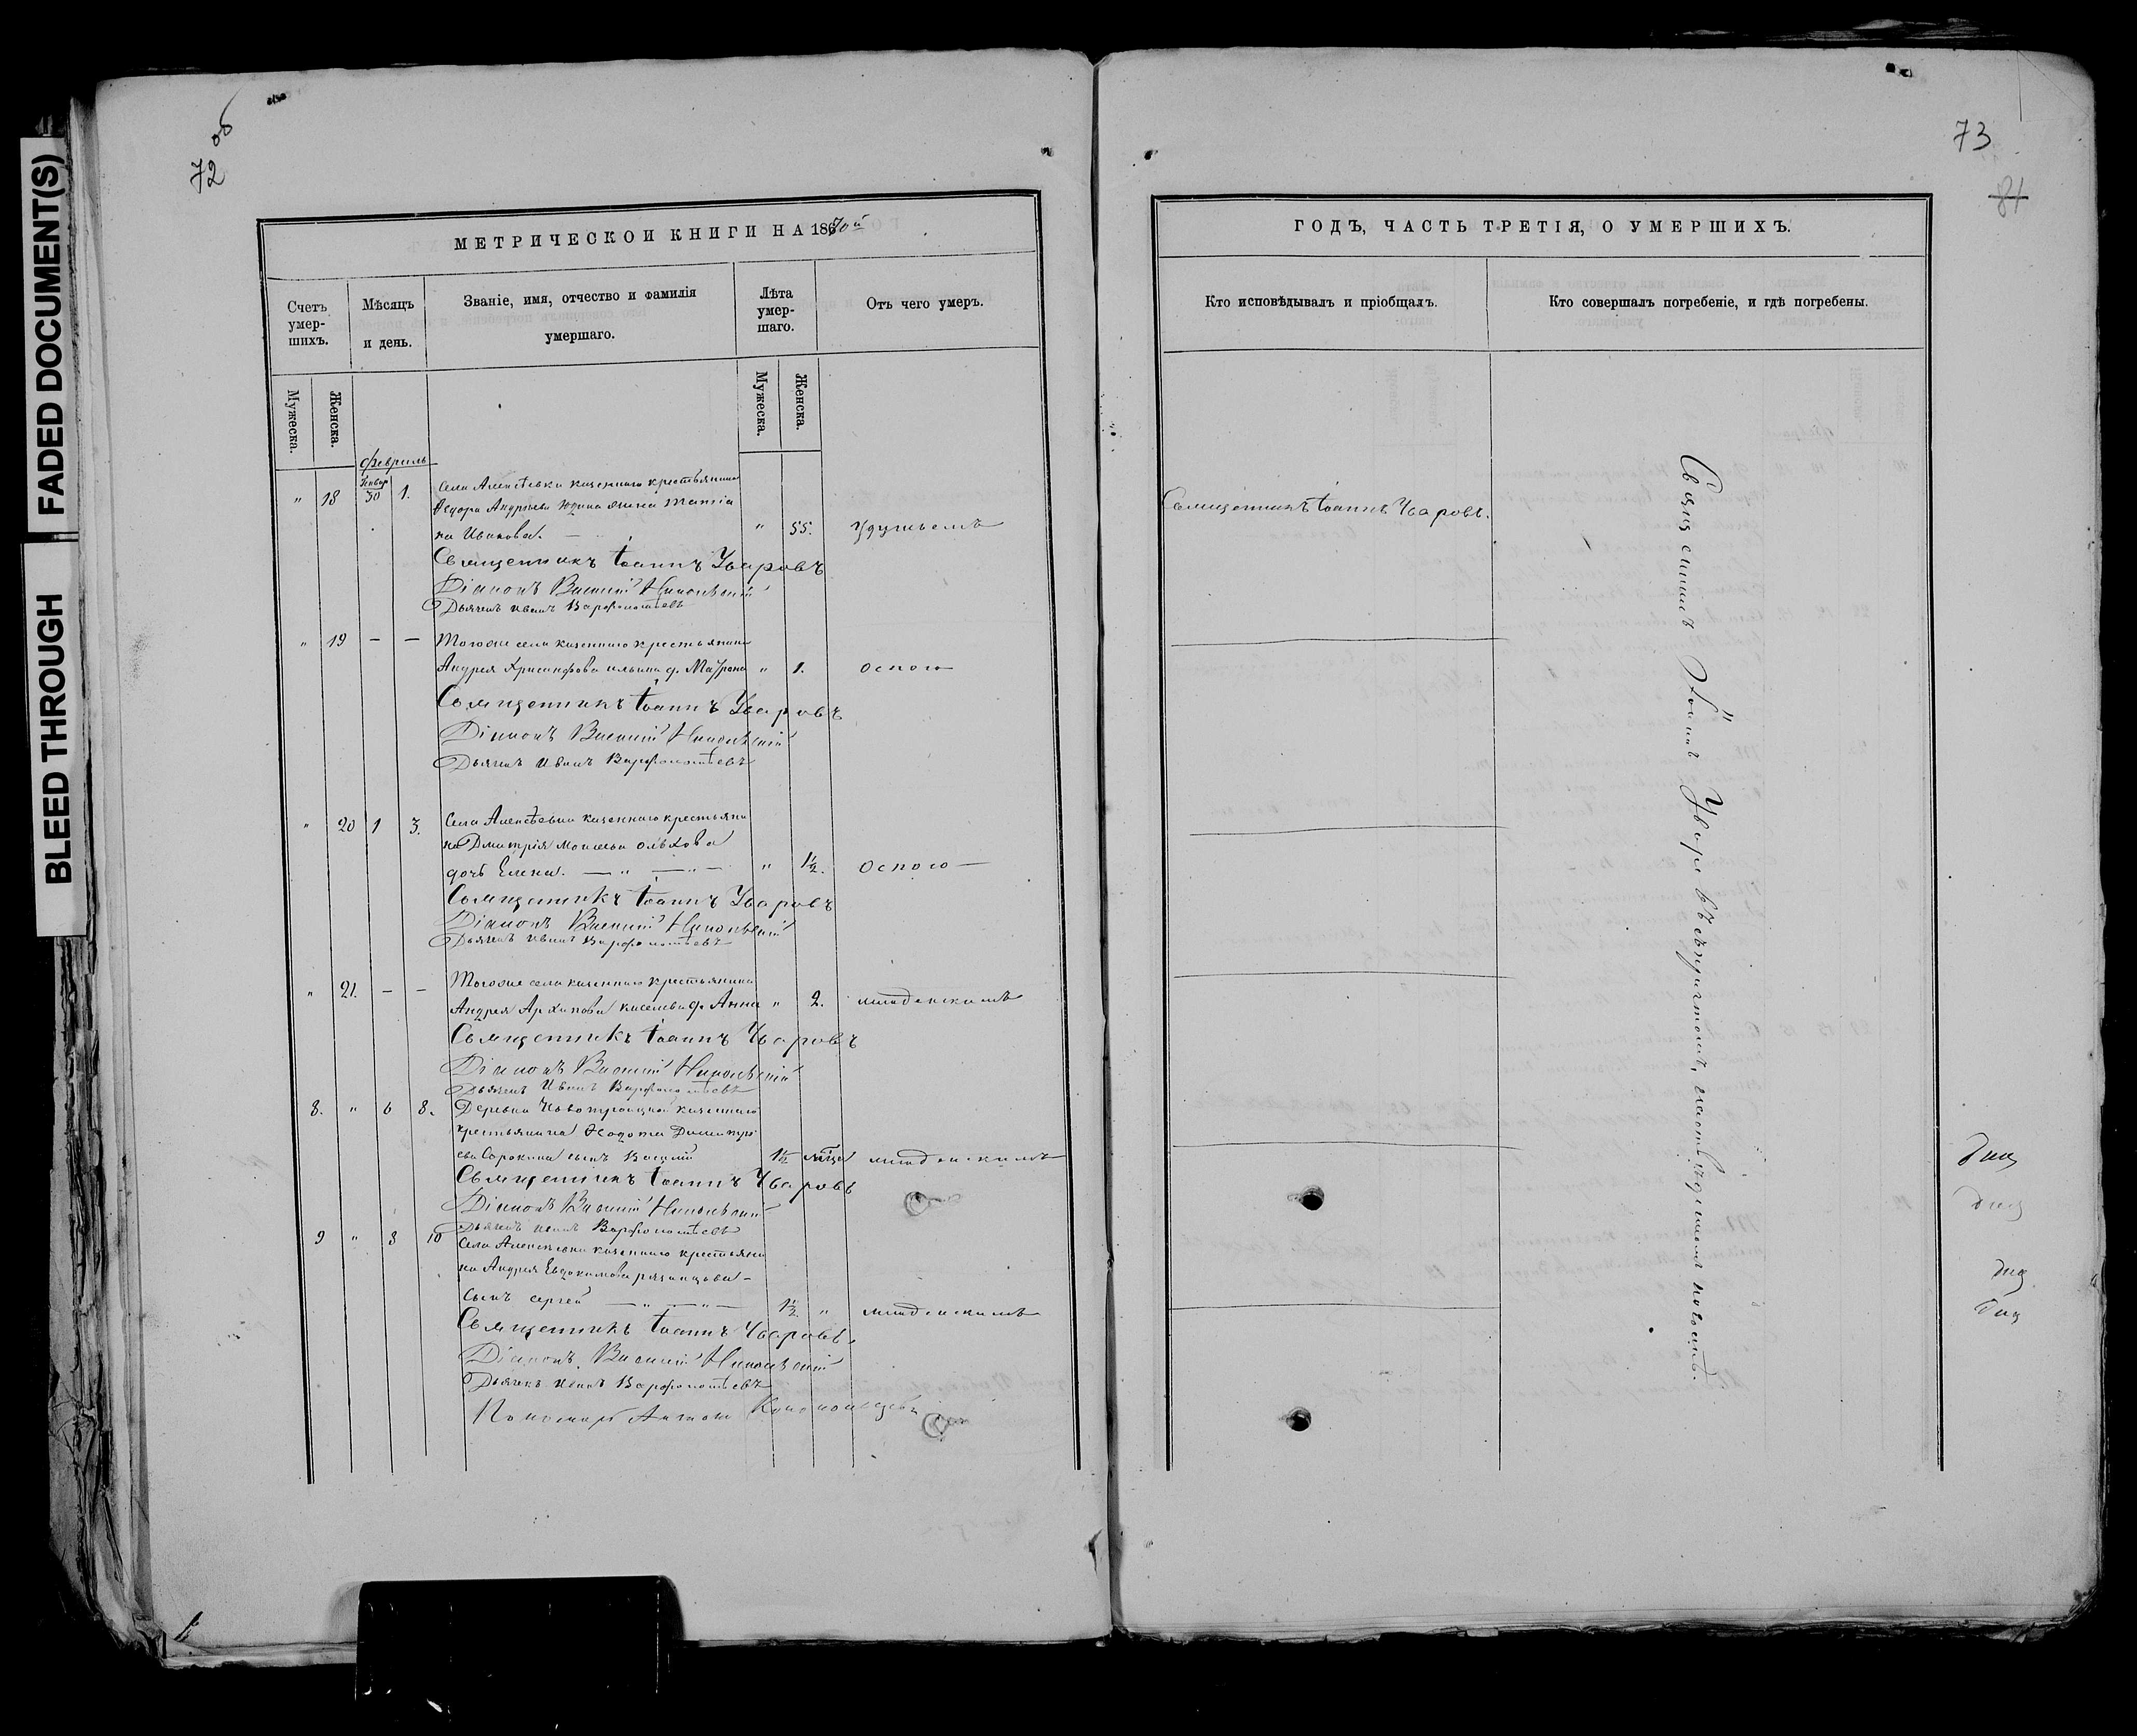 FADED DOCUMENT(S)
BLEED THROUGH
об
72
МЕТРИЧЕСКОЙ КНИГИ НА 1870й
Счетъ умер-шихъ.
Мѣсяцъ и день.
Званіе, имя, отчество и фамилія умершаго.
Лѣта умер-шаго.
Отъ чего умеръ.
Мужеска.
Женска.
Мужеска.
Женска.
февраль
" 18 Январ 30 1. Села Алексѣевки казеннаго крестьянина
Ѳедора Андреева жена
на Иванова. " 55. удушьемъ
Священникъ Іоаннъ Уваровъ
Діаконъ Василій Никольскій
Дьячекъ Иванъ Варфоломѣевъ
" 19 — — Тогоже села казеннаго крестьянина
Андрея Хрисанфова Ильина д. Маѳрона " 1. оспою
Священникъ Іоаннъ Уваровъ
Діаконъ Василій Никольскій
Дьячекъ Иванъ Варфоломѣевъ
" 20 1 3. Села Алексѣевки казеннаго крестьяни
на Дмитрія Моисеева Ольхова
дочь Елена. — " — " — " 1½. оспою —
Священникъ Іоаннъ Уваровъ
Діаконъ Василій Никольскій
Дьячекъ Иванъ Варфоломѣевъ
" 21. — — Тогоже села казеннаго крестьянина
Андрея Архипова Киселева д. Анна " 2. младенскимъ
Священникъ Іоаннъ Уваровъ
Діаконъ Василій Никольскій
Дьячекъ Иванъ Варфоломѣевъ
8. " 6 8. Деревни Новотроицкой казеннаго
крестьянина Ѳедота Димитрі
ева Сорокина сынъ Василій 1½ мѣца младенскимъ
Священникъ Іоаннъ Уваровъ
Діаконъ Василій Никольскій
Дьячекъ Иванъ Варфоломѣевъ
9 " 8 10 Села Алексѣевки казеннаго крестьяни
на Андрея Евдокимова Рязанцова —
сынъ Сергей — " — " — 1½ " младенскимъ
Священникъ Іоаннъ Уваровъ
Діаконъ Василій Никольскій
Дьячекъ Иванъ Варфоломѣевъ
Пономарь Антонъ
73
81
ГОДЪ, ЧАСТЬ ТРЕТІЯ, О УМЕРШИХЪ.
Кто исповѣдывалъ и пріобщалъ.
Кто совершалъ погребеніе, и гдѣ погребены.
Священникъ Іоаннъ Уваровъ.
Священникъ Іоаннъ Уваровъ съ причтомъ, на отведенномъ